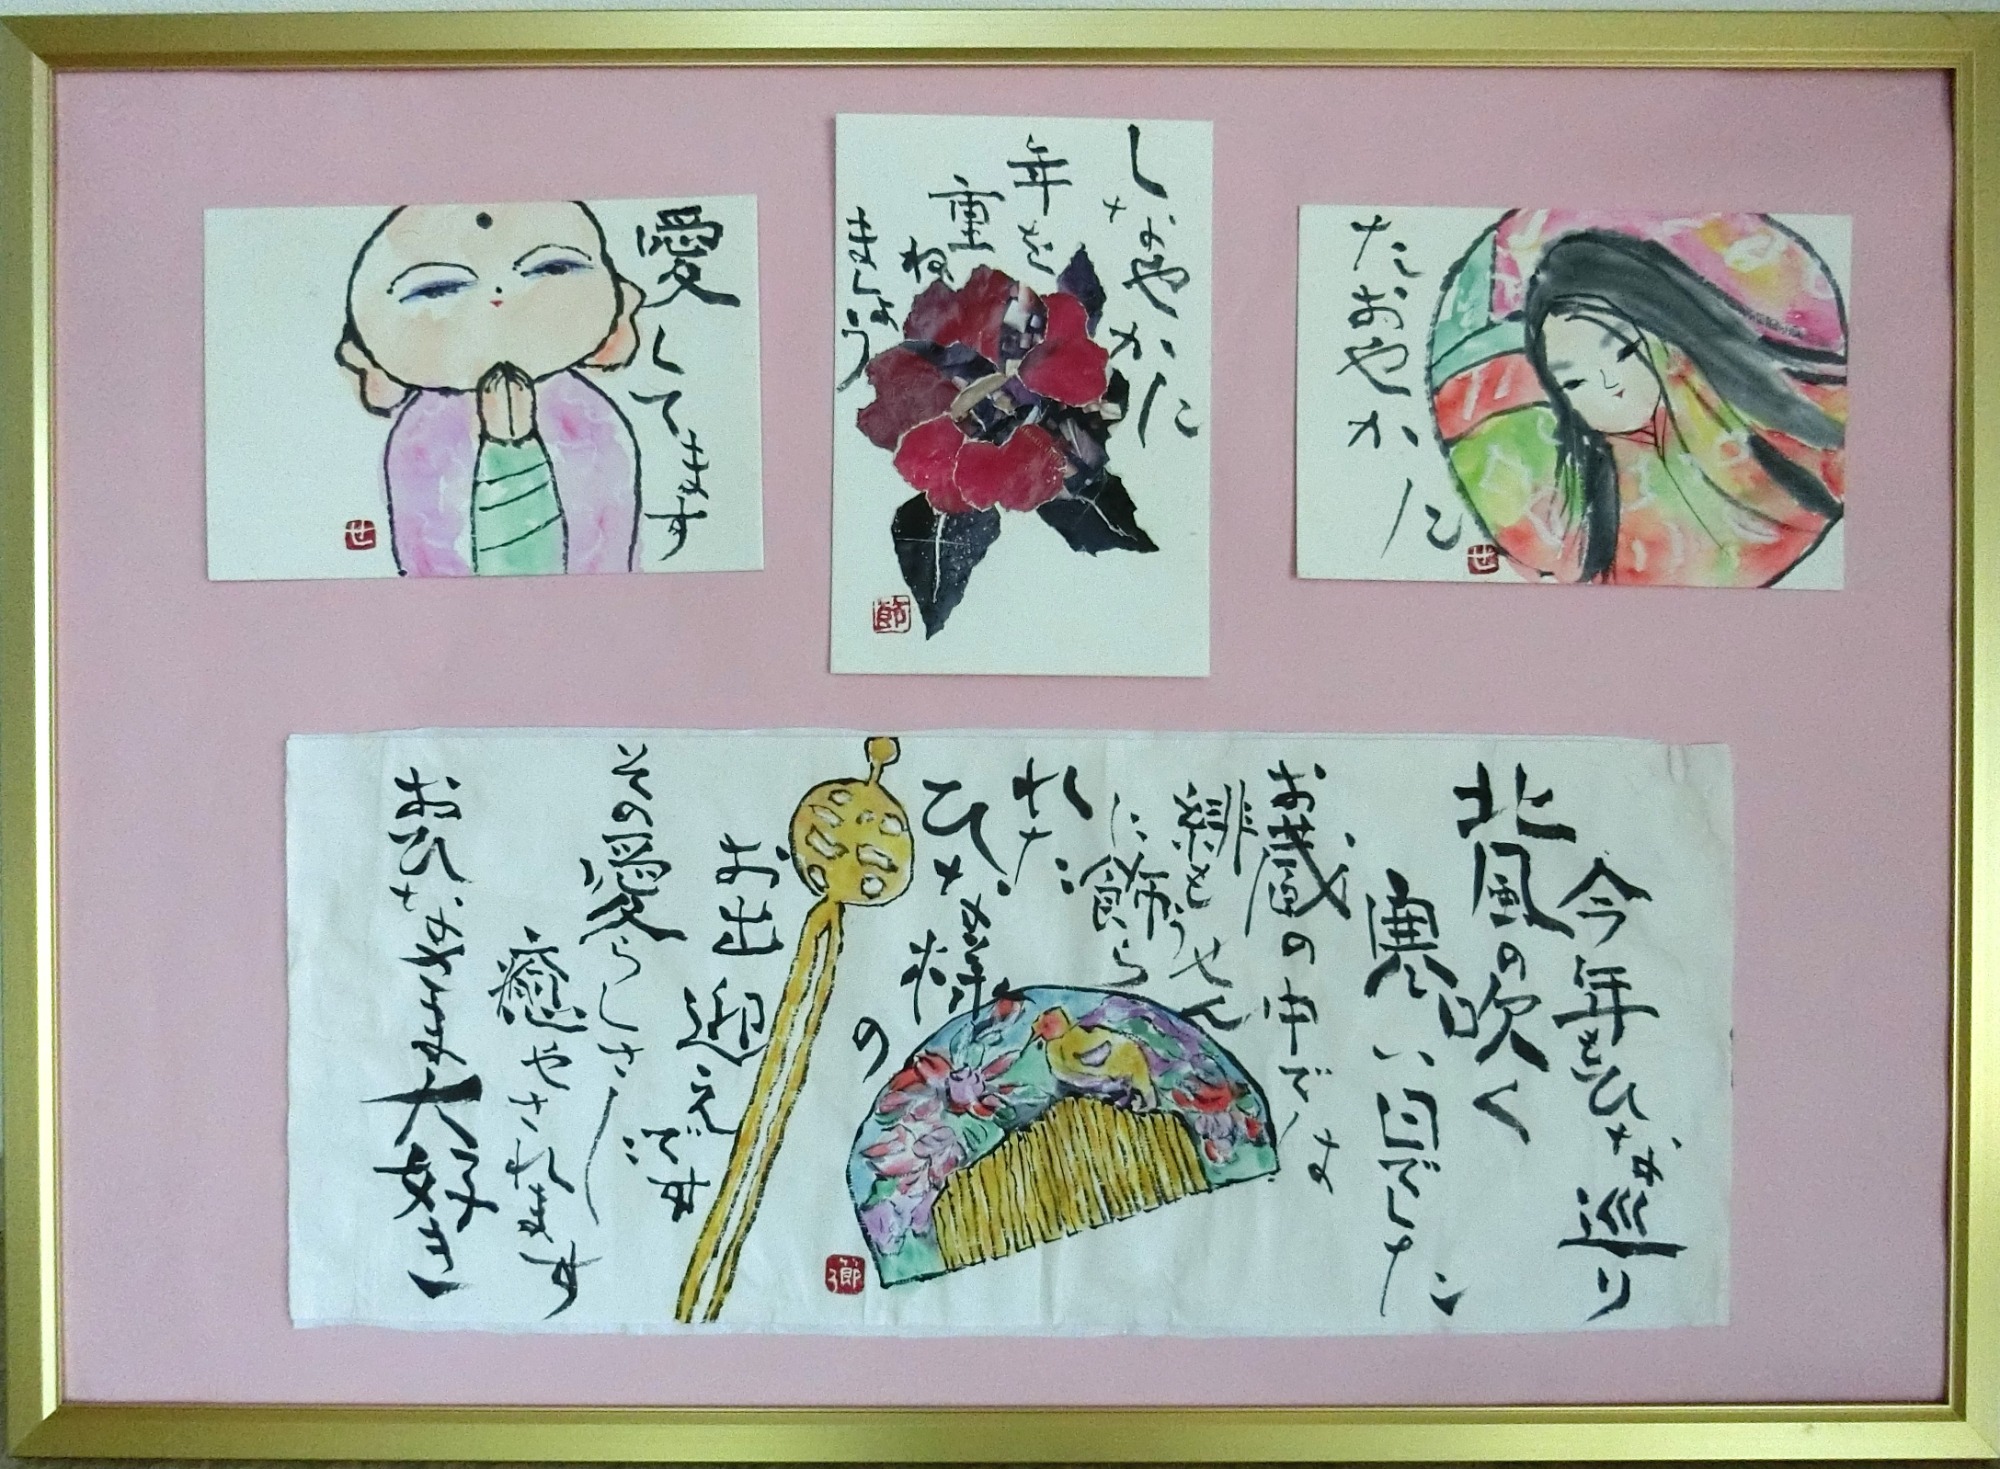 愛してます
世
しなやかに
年を
重ね
ましょう
節
たおやかに
世
今年もひなめ巡り
北風の吹く
寒い日でした
お蔵の中では
緋毛うせん
に飾ら
れた
ひな様
の
お出迎えです
その愛らしさに
癒やされます
おひなさま大好き
節